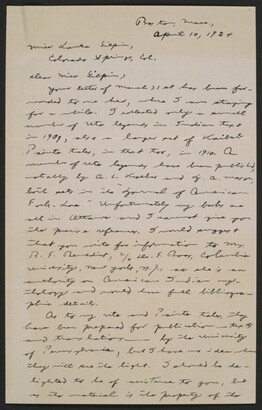 Boston, Mass.,
April 10, 1924
Miss Laura Gilpin,
Colorado Springs, Col.
Dear Miss Gilpin:
Your letter of March 31st has been for-
warded to me here, where I am staying
for a while. I collected only a small
number of Ute legends in Indian text
in 1909, also a larger set of Kaibab
Paiute tales, in that too, in 1910. A
number of Ute legends have been published,
notably by A. L. Kroeber and J. A. Mason,
both sets in the "Journal of American
Folk-Lore." Unfortunately my books are
all in Ottawa and I cannot give you
the precise reference. I would suggest
that you write for information to Mrs.
R. F. Benedict, c/o Dr. F. Boas, Columbia
University, New York, N.Y., as she is an
authority on American Indian my-
thology and would have full bibliogra-
phic detail.
As to my Ute and Paiute tales, they
have been prepared for publication — texts
and translations — by the University
of Pennsylvania, but I have no idea when
they will see the light. I should be de-
lighted to be of assistance to you, but
as the material is the property of the